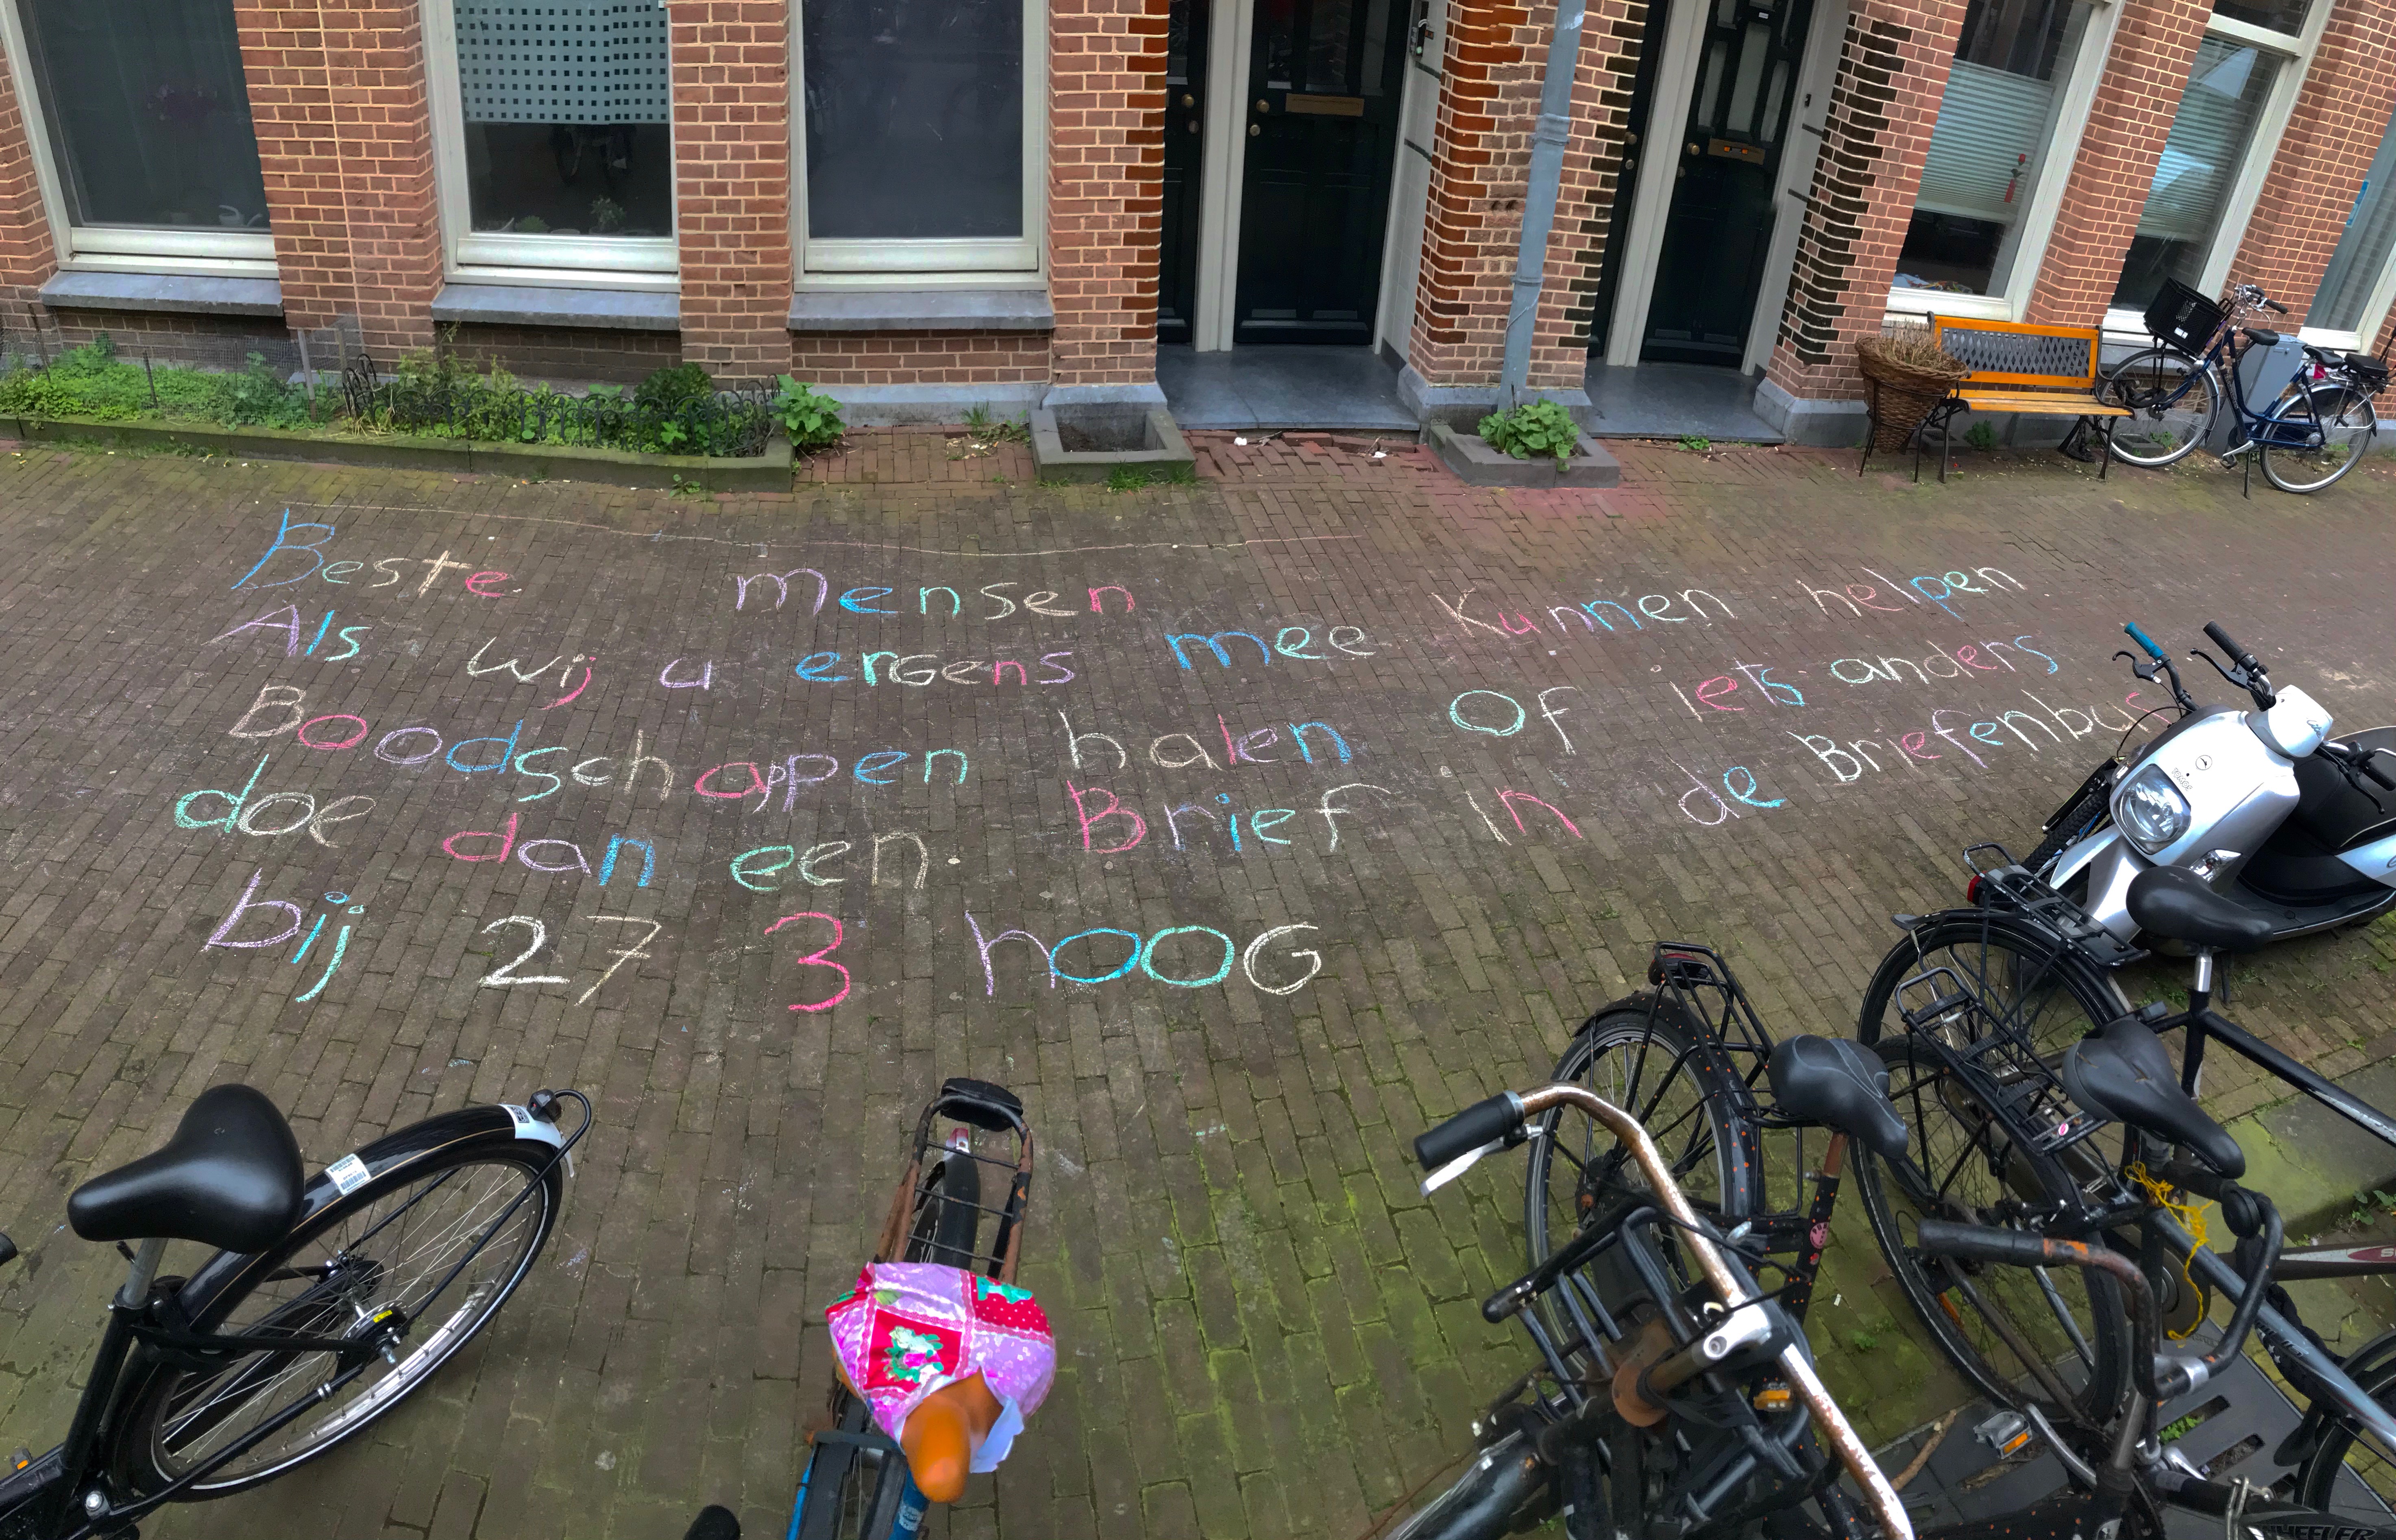 Beste mensen
Als wij u ergens mee kunnen helpen
Boodschappen halen Of iets anders
doe dan een Brief in de Briefenbus
bij 27 3 hoog